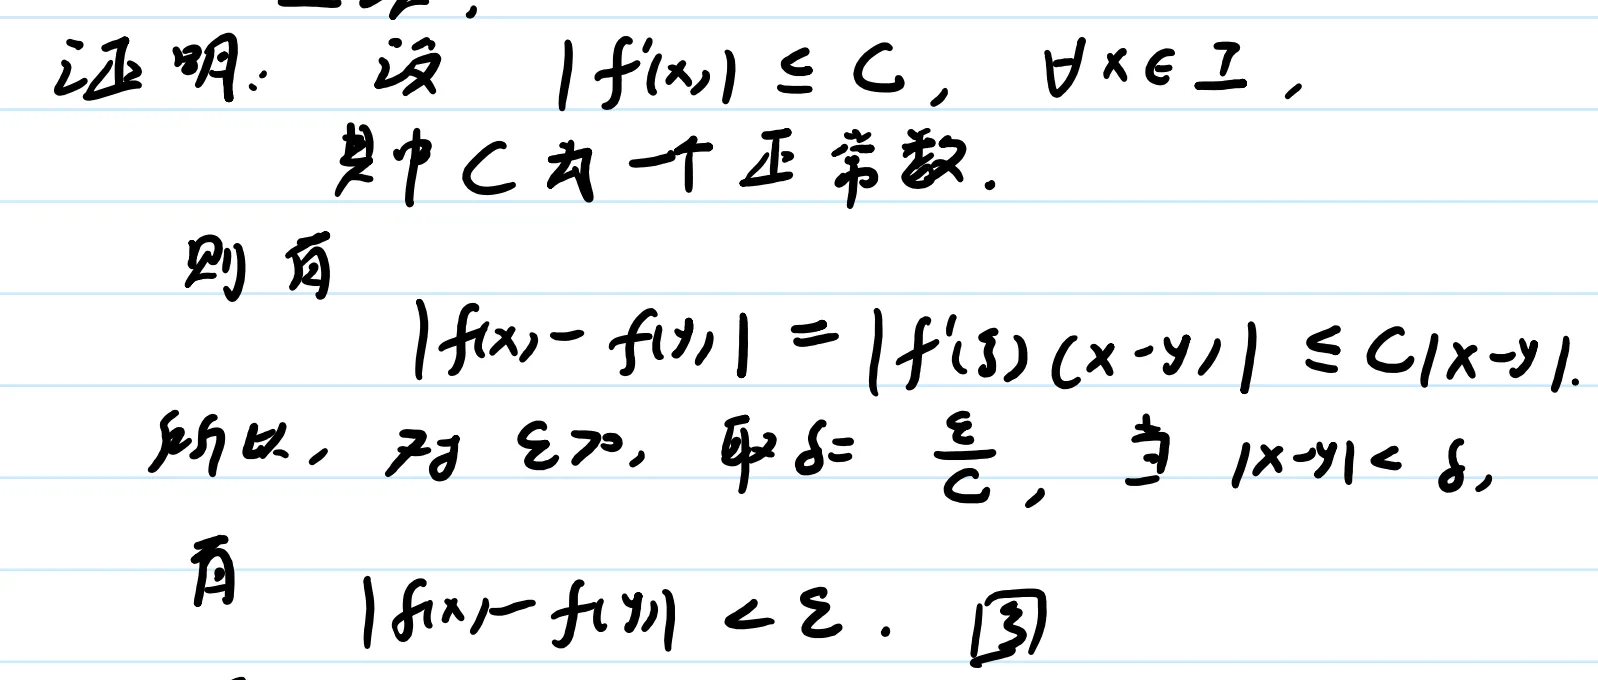 证明: 设 |f'(x)| ≤ C, ∀x∈I,
其中 C 为一个正常数.
则有
|f(x) - f(y)| = |f'(ξ)(x-y)| ≤ C|x-y|.
所以, 对 ε>0, 取 δ= ε/C, 当 |x-y| < δ,
有
|f(x) - f(y)| < ε.